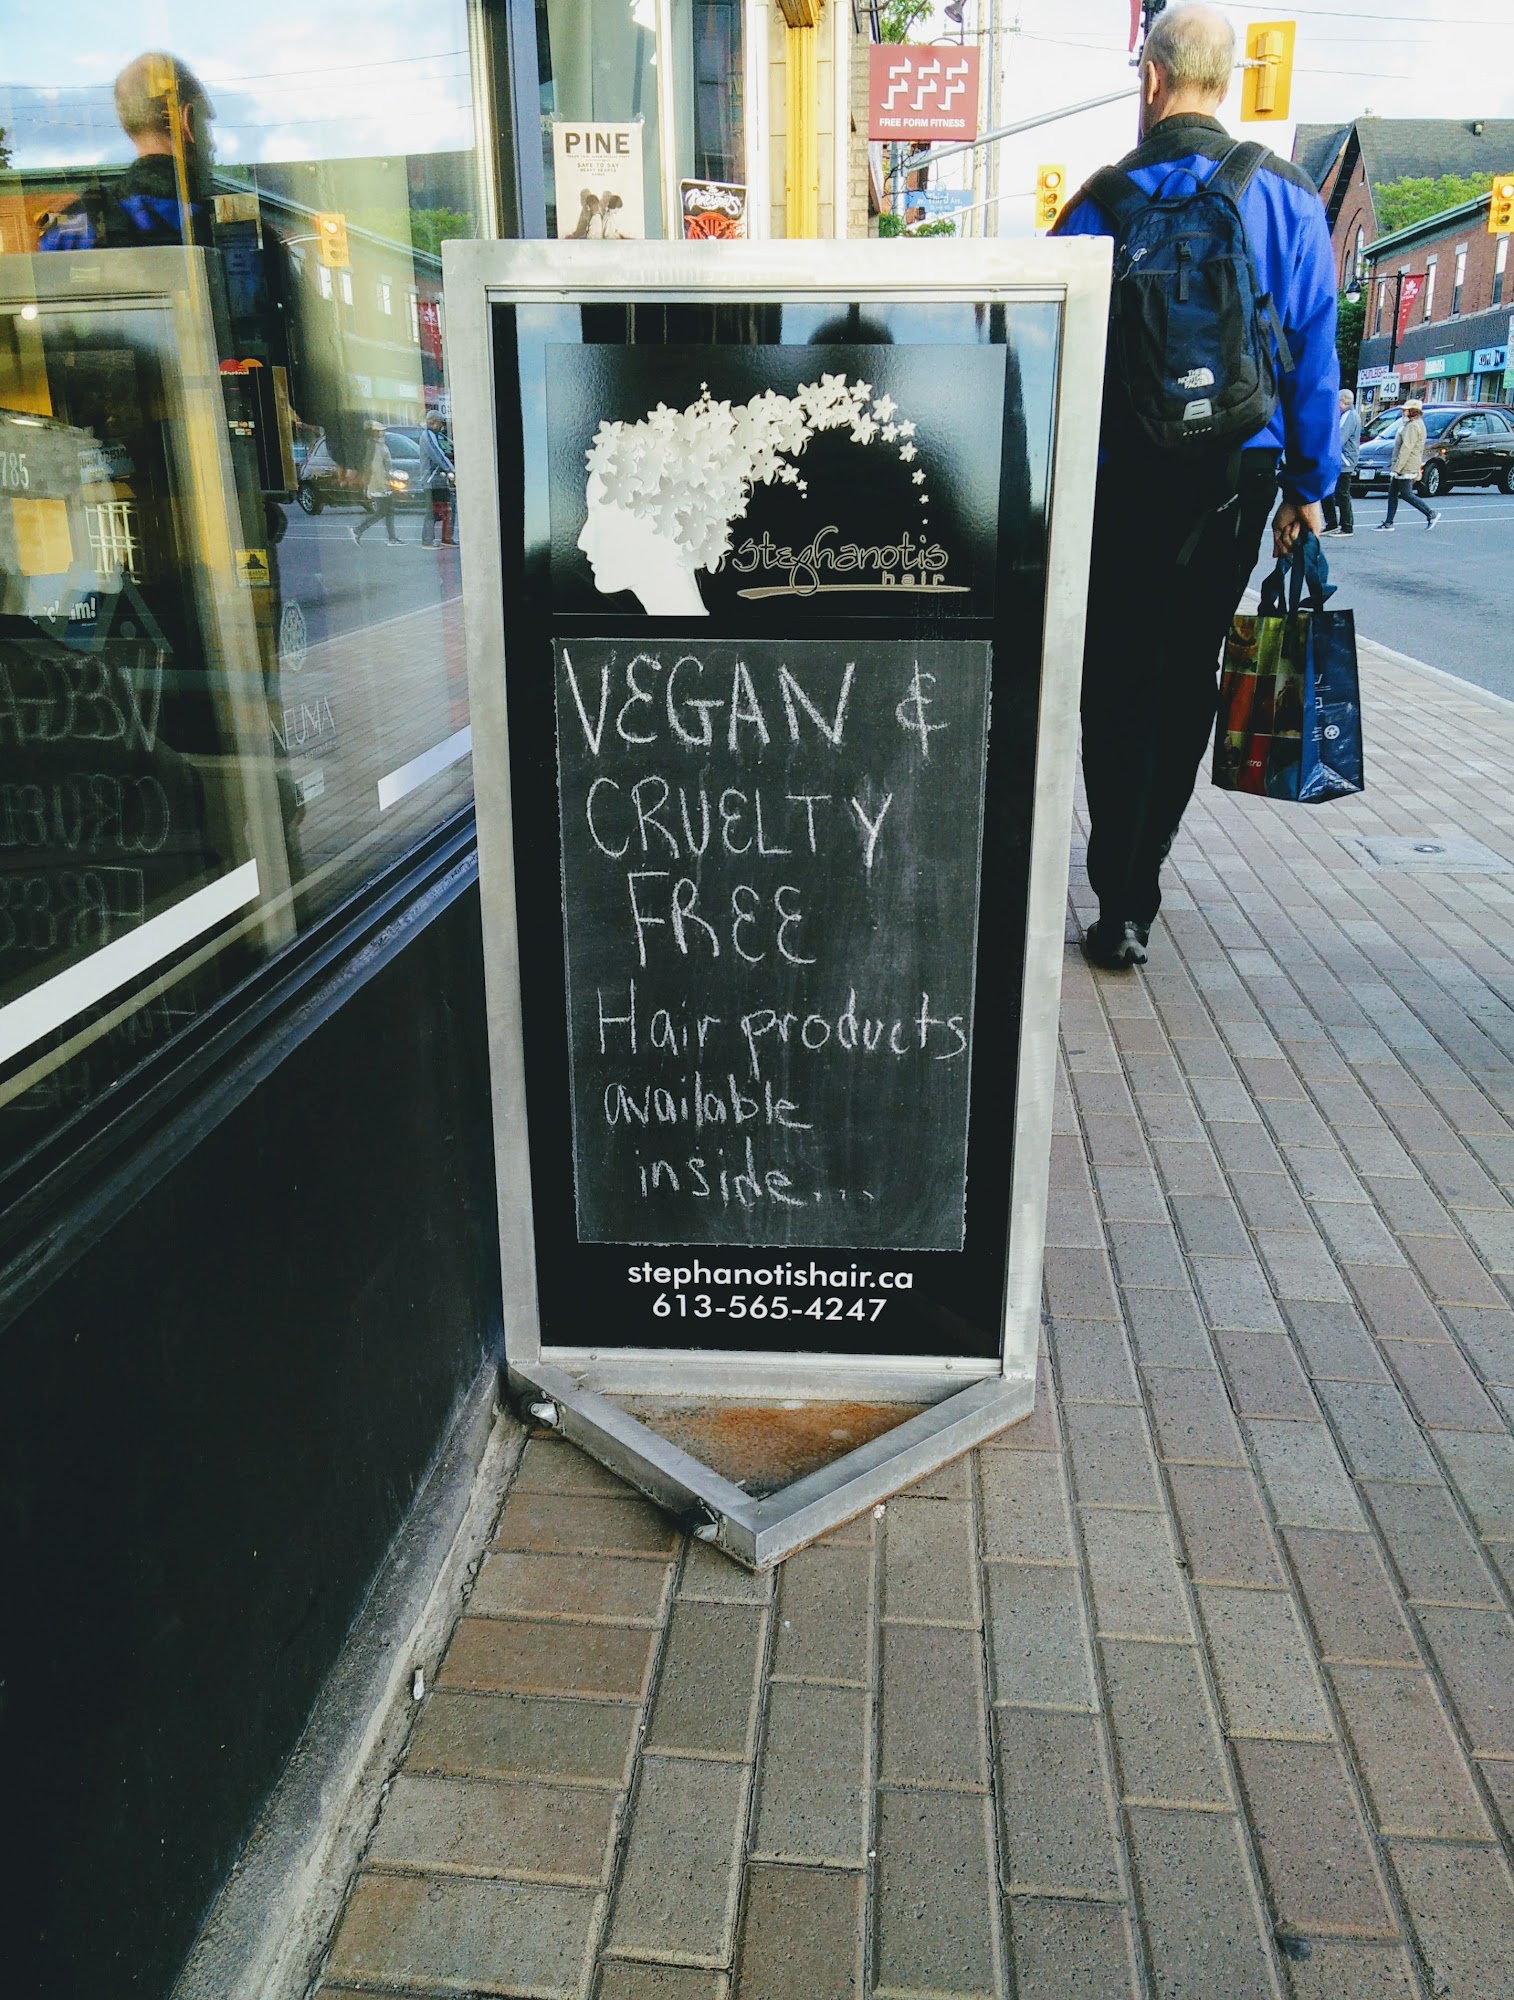 PINE
SAFE TO SAY
FFF
FREE FORM FITNESS
THE NORTH FACE
40
785
stephanotis
hair
VEGAN &
CRUELTY
FREE
Hair products
available
inside...
stephanotishair.ca
613-565-4247